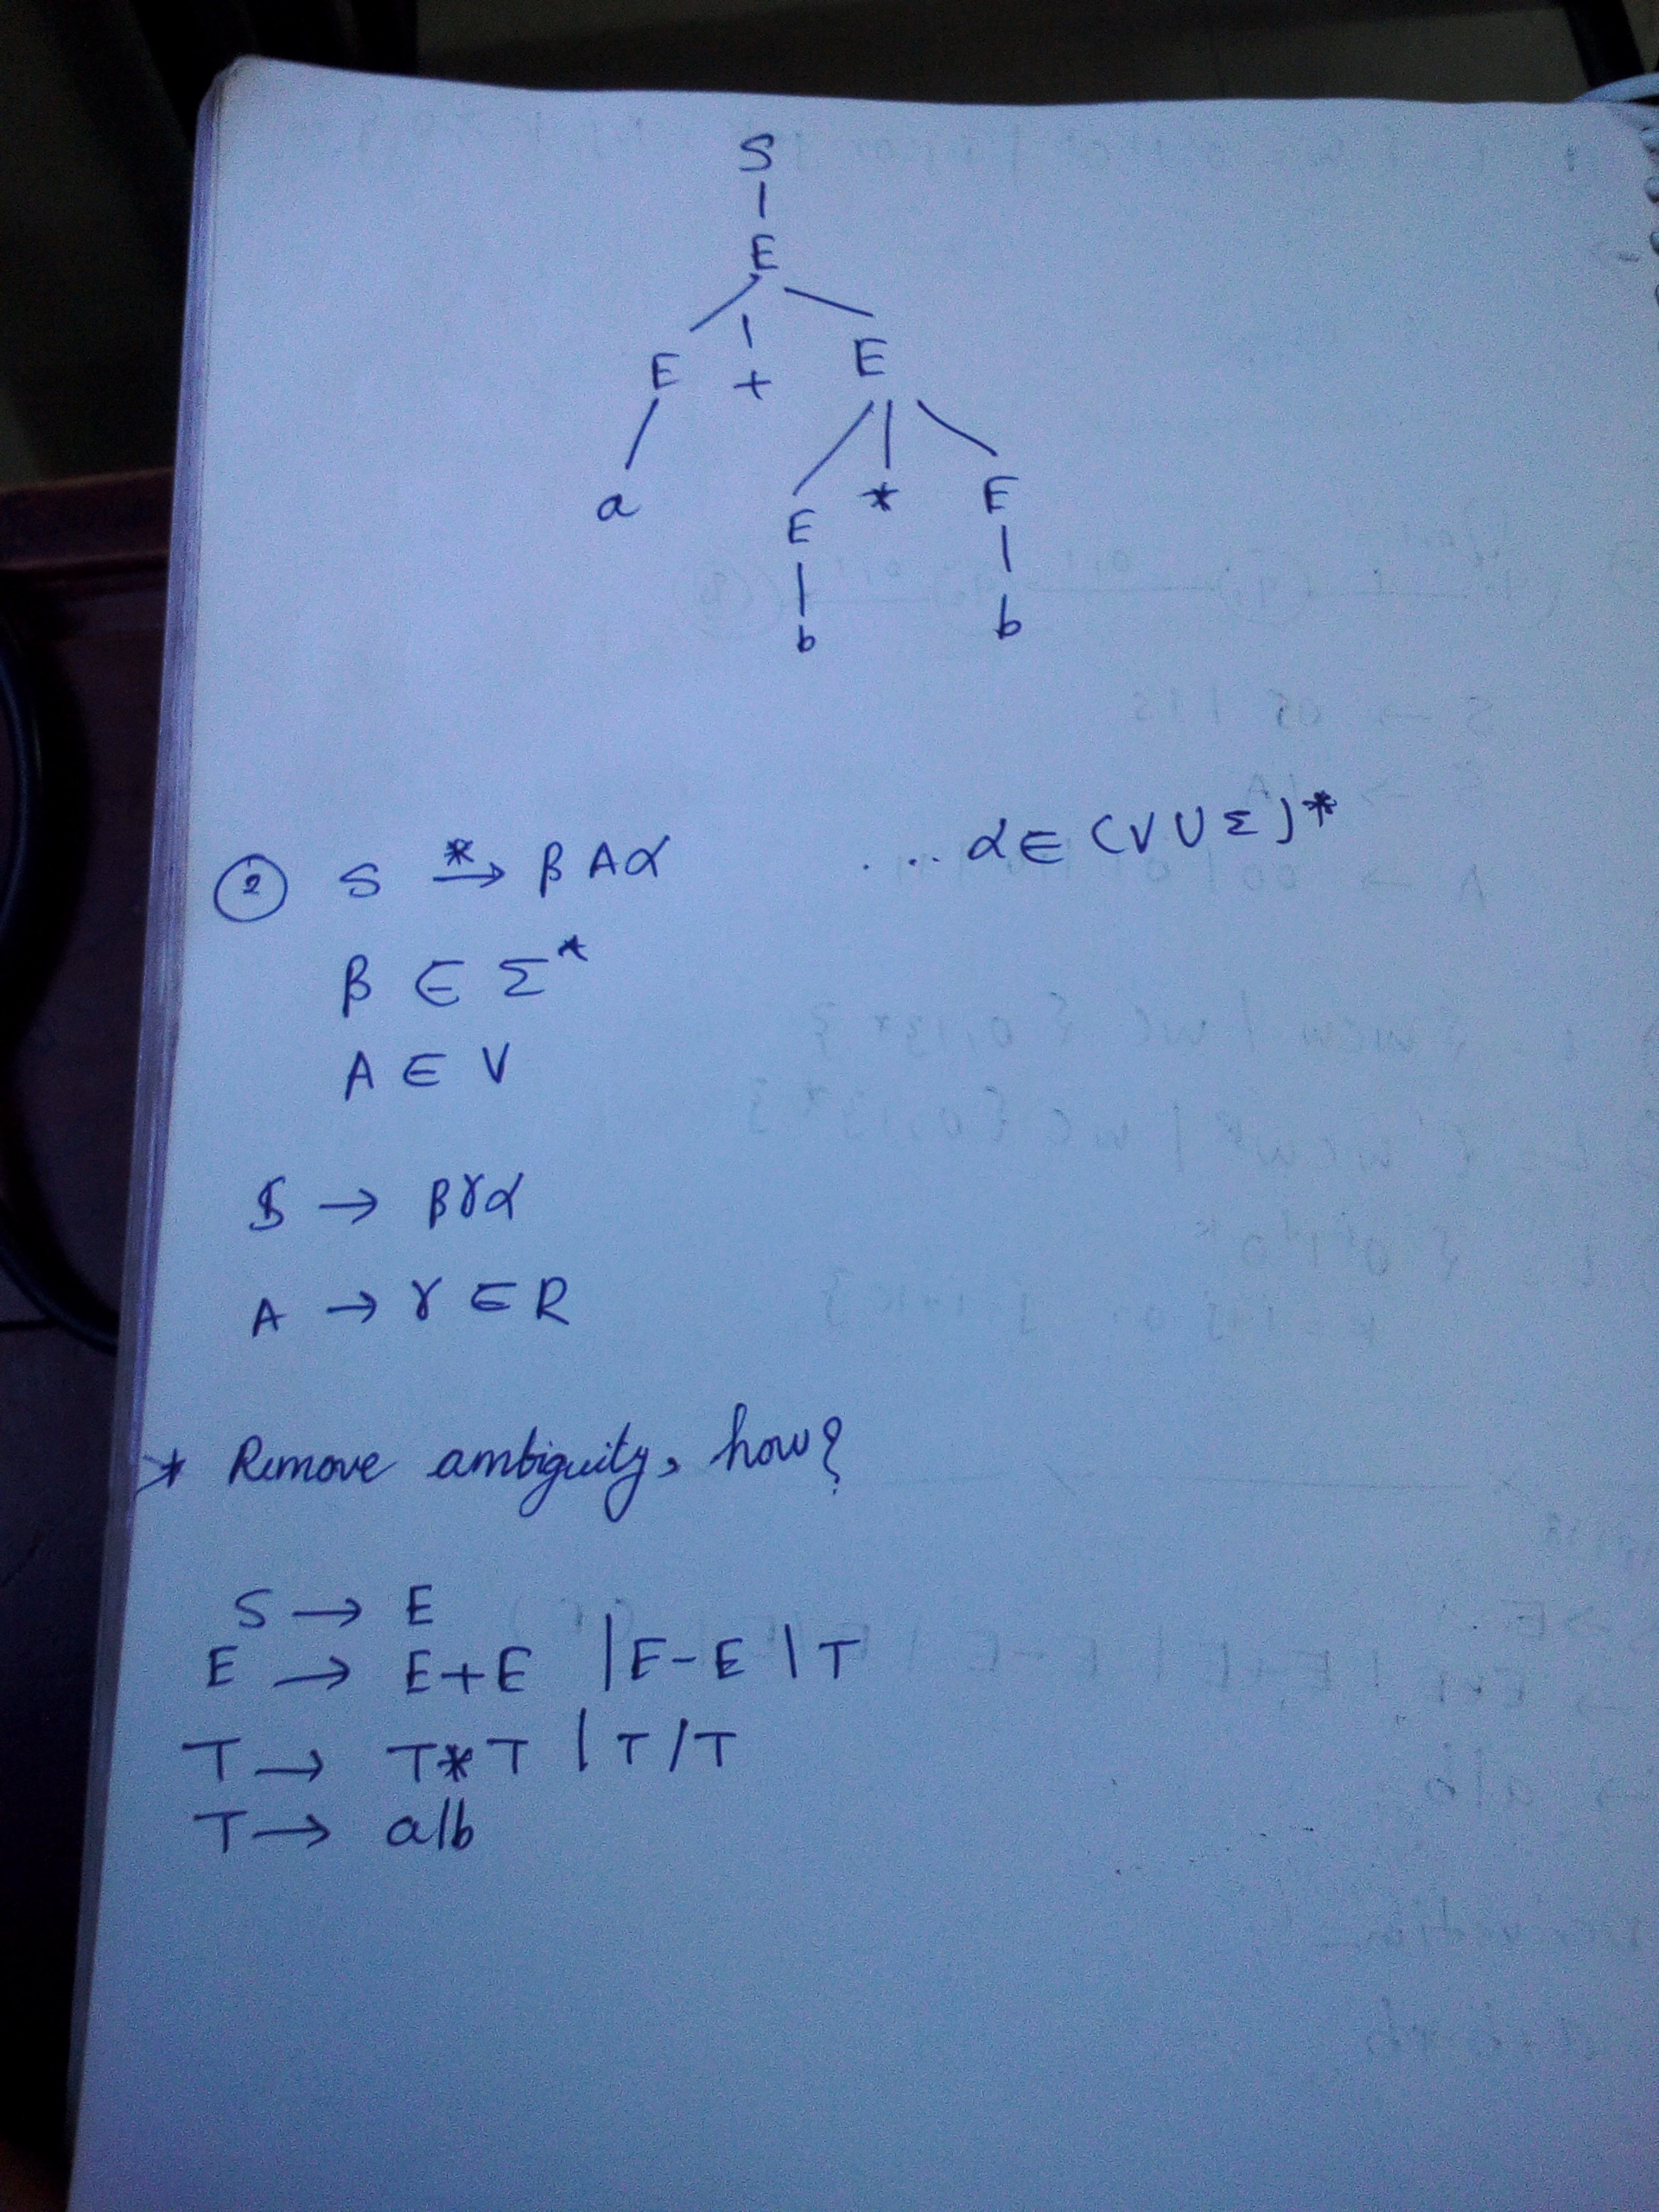 S
E
E + E
a
E * E
b b
② S *→ β A α ... α ∈ (V ∪ Σ)*
β ∈ Σ*
A ∈ V
S → β γ α
A → γ ∈ R
* Remove ambiguity, how?
S → E
E → E+E | E-E | T
T → T*T | T/T
T → a|b